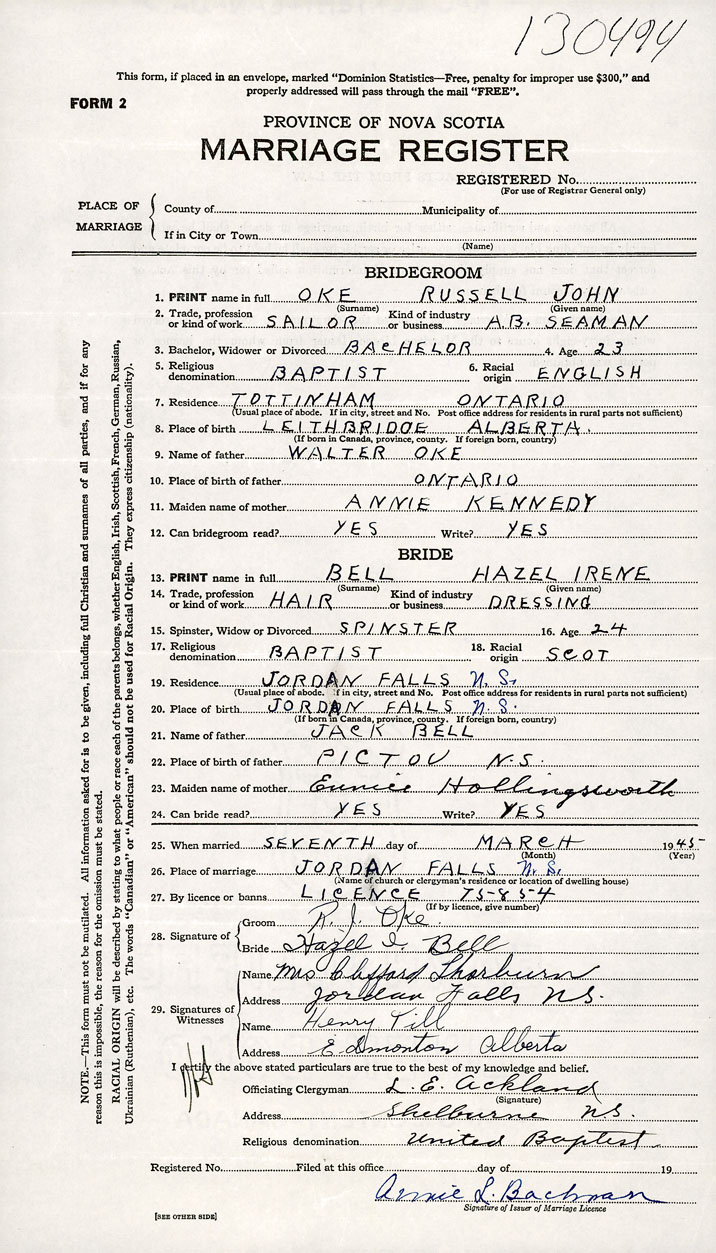 130494
This form, if placed in an envelope, marked "Dominion Statistics—Free, penalty for improper use $300," and
properly addressed will pass through the mail "FREE".
FORM 2
PROVINCE OF NOVA SCOTIA
MARRIAGE REGISTER
REGISTERED No.
(For use of Registrar General only)
PLACE OF MARRIAGE
County of Municipality of
If in City or Town
(Name)
BRIDEGROOM
1. PRINT name in full OKE RUSSELL JOHN
(Surname) (Given name)
2. Trade, profession or kind of work SAILOR Kind of industry or business A.B. SEAMAN
3. Bachelor, Widower or Divorced BACHELOR 4. Age 23
5. Religious denomination BAPTIST 6. Racial origin ENGLISH
7. Residence TOTTINHAM ONTARIO
(Usual place of abode. If in city, street and No. Post office address for residents in rural parts not sufficient)
8. Place of birth LEITHBRIDGE ALBERTA.
(If born in Canada, province, county. If foreign born, country)
9. Name of father WALTER OKE
10. Place of birth of father ONTARIO
11. Maiden name of mother ANNIE KENNEDY
12. Can bridegroom read? YES Write? YES
BRIDE
13. PRINT name in full BELL HAZEL IRENE
(Surname) (Given name)
14. Trade, profession or kind of work HAIR Kind of industry or business DRESSING
15. Spinster, Widow or Divorced SPINSTER 16. Age 24
17. Religious denomination BAPTIST 18. Racial origin SCOT
19. Residence JORDAN FALLS N.S.
(Usual place of abode. If in city, street and No. Post office address for residents in rural parts not sufficient)
20. Place of birth JORDAN FALLS N.S.
(If born in Canada, province, county. If foreign born, country)
21. Name of father JACK BELL
22. Place of birth of father PICTOU N.S.
23. Maiden name of mother Eunice Hollingsworth
24. Can bride read? YES Write? YES
25. When married SEVENTH day of MARCH 1945
(Month) (Year)
26. Place of marriage JORDAN FALLS N.S.
(Name of church or clergyman's residence or location of dwelling house)
27. By licence or banns LICENCE 75854
(If by licence, give number)
28. Signature of
Groom R. J. Oke
Bride Hazel I. Bell
29. Signatures of Witnesses
Name Mrs Clifford Thorburn
Address Jordan Falls N.S.
Name Henry Till
Address Edmonton Alberta
I certify the above stated particulars are true to the best of my knowledge and belief.
Officiating Clergyman L. E. Ackland
(Signature)
Address Shelburne N.S.
Religious denomination United Baptist
Registered No. Filed at this office day of 19
Annie L. Bachman
Signature of Issuer of Marriage Licence
[SEE OTHER SIDE]
NOTE.—This form must not be mutilated. All information asked for is to be given, including full Christian and surnames of all parties, and if for any
reason this is impossible, the reason for the omission must be stated.
RACIAL ORIGIN will be described by stating to what people or race each of the parents belongs, whether English, Irish, Scottish, French, German, Russian,
Ukrainian (Ruthenian), etc. The words "Canadian" or "American" should not be used for Racial Origin. They express citizenship (nationality).